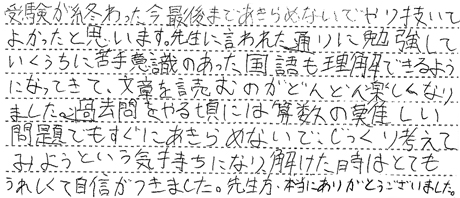 受験が終わった今最後まであきらめないでやり抜いて
よかったと思います。先生に言われた通りに勉強して
いくうちに苦手意識のあった国語も理解できるよう
になってきて、文章を読むのがどんどん楽しくなり
ました。過去問をやる頃には算数の難しい
問題でもすぐにあきらめないで、じっくり考えて
みようという気持ちになり、解けた時はとても
うれしくて自信がつきました。先生方、本当にありがとうございました。